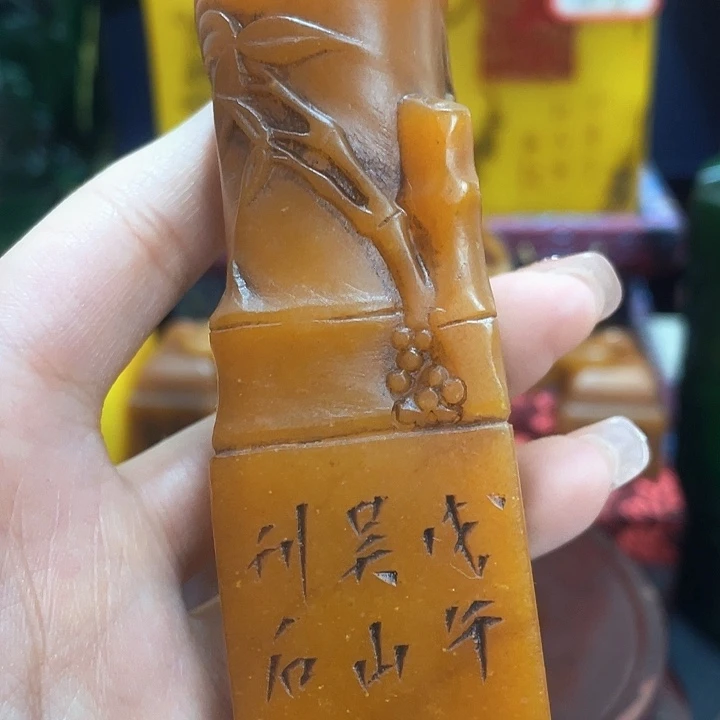 戊午
吴山
石